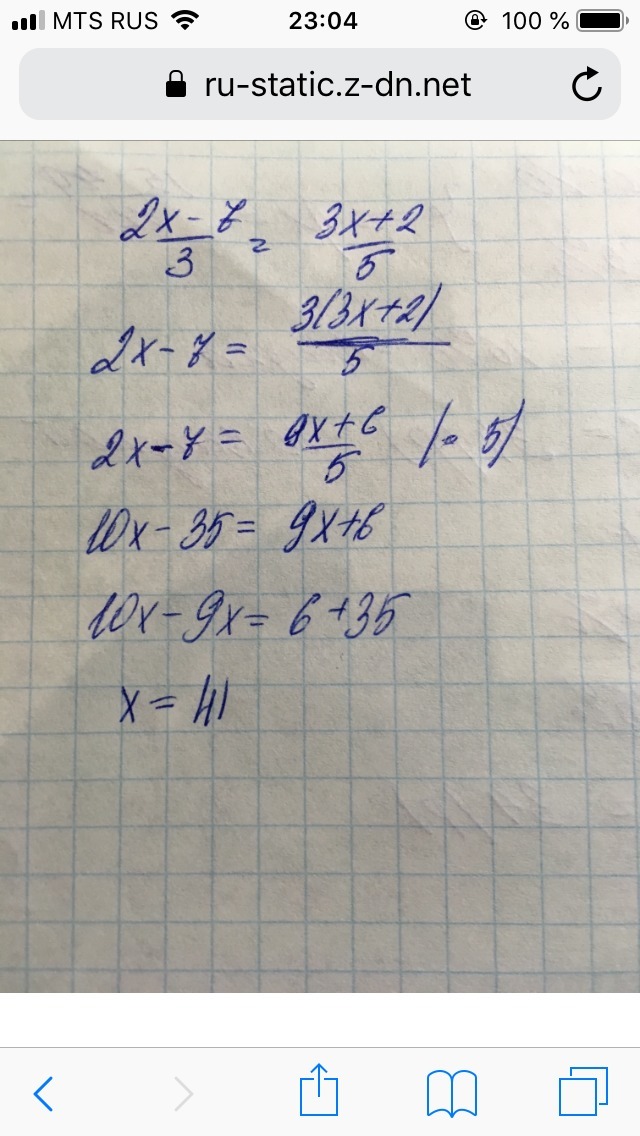 MTS RUS 23:04 100 %
ru-static.z-dn.net
2x-7/3 = 3x+2/5
2x-7 = 3(3x+2)/5
2x-7 = 9x+6/5 |• 5|
10x-35 = 9x+6
10x-9x = 6+35
x = 41